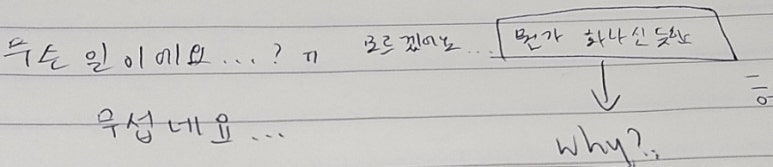 무슨 일이에요...? ㄲ 모르겠어요... 뭔가 화나신듯한
무섭네요...
why?..